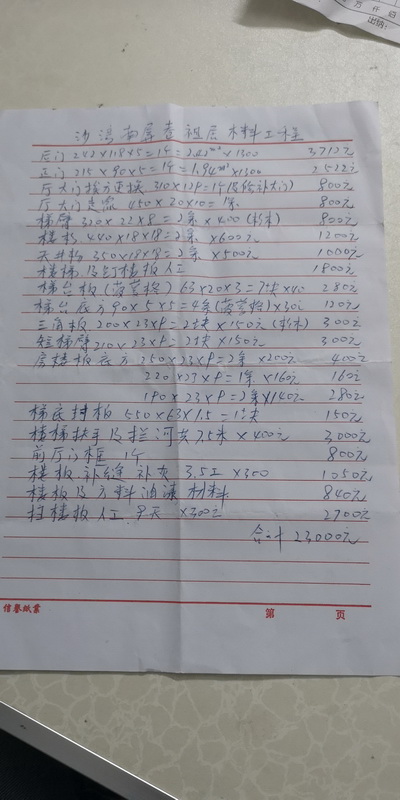 万 仟 百
出纳:
沙湾南屏查祖屋木料工程
后门 242×118×5=1个=2.85m²×1300 3712元
正门 215×90×5=1个=1.94m²×1300 2522元
800元
厅大门 450×20×10=1条 800元
梯臂 320×22×8=2条×400(杉木) 800元
楼杉 440×18×18=2条×600元 1200元
天井杉 350×18×18=2条×500元 1000元
楼梯及钉楼板人工 1800元
梯台板(菠萝格) 63×20×3=7块×40 280元
梯台底方 90×5×5=4条(菠萝格)×30元 120元
三角板 200×23×8=2块×150元(杉木) 300元
短梯臂 210×23×8=2块×150元 300元
房楼板底方 250×23×8=2条×200元 400元
220×23×8=1条×160元 160元
190×23×8=2条×140元 280元
梯底挂柏 550×63×1.5=1块 150元
楼梯扶手及拦河共7.5米×400元 3000元
前厅门框 1个 800元
楼板补缝补灰 3.5工×300 1050元
楼板及方料油漆材料 840元
扫楼板人工 9天×300元 2700元
合计 23000元
信誉纸业 第 页